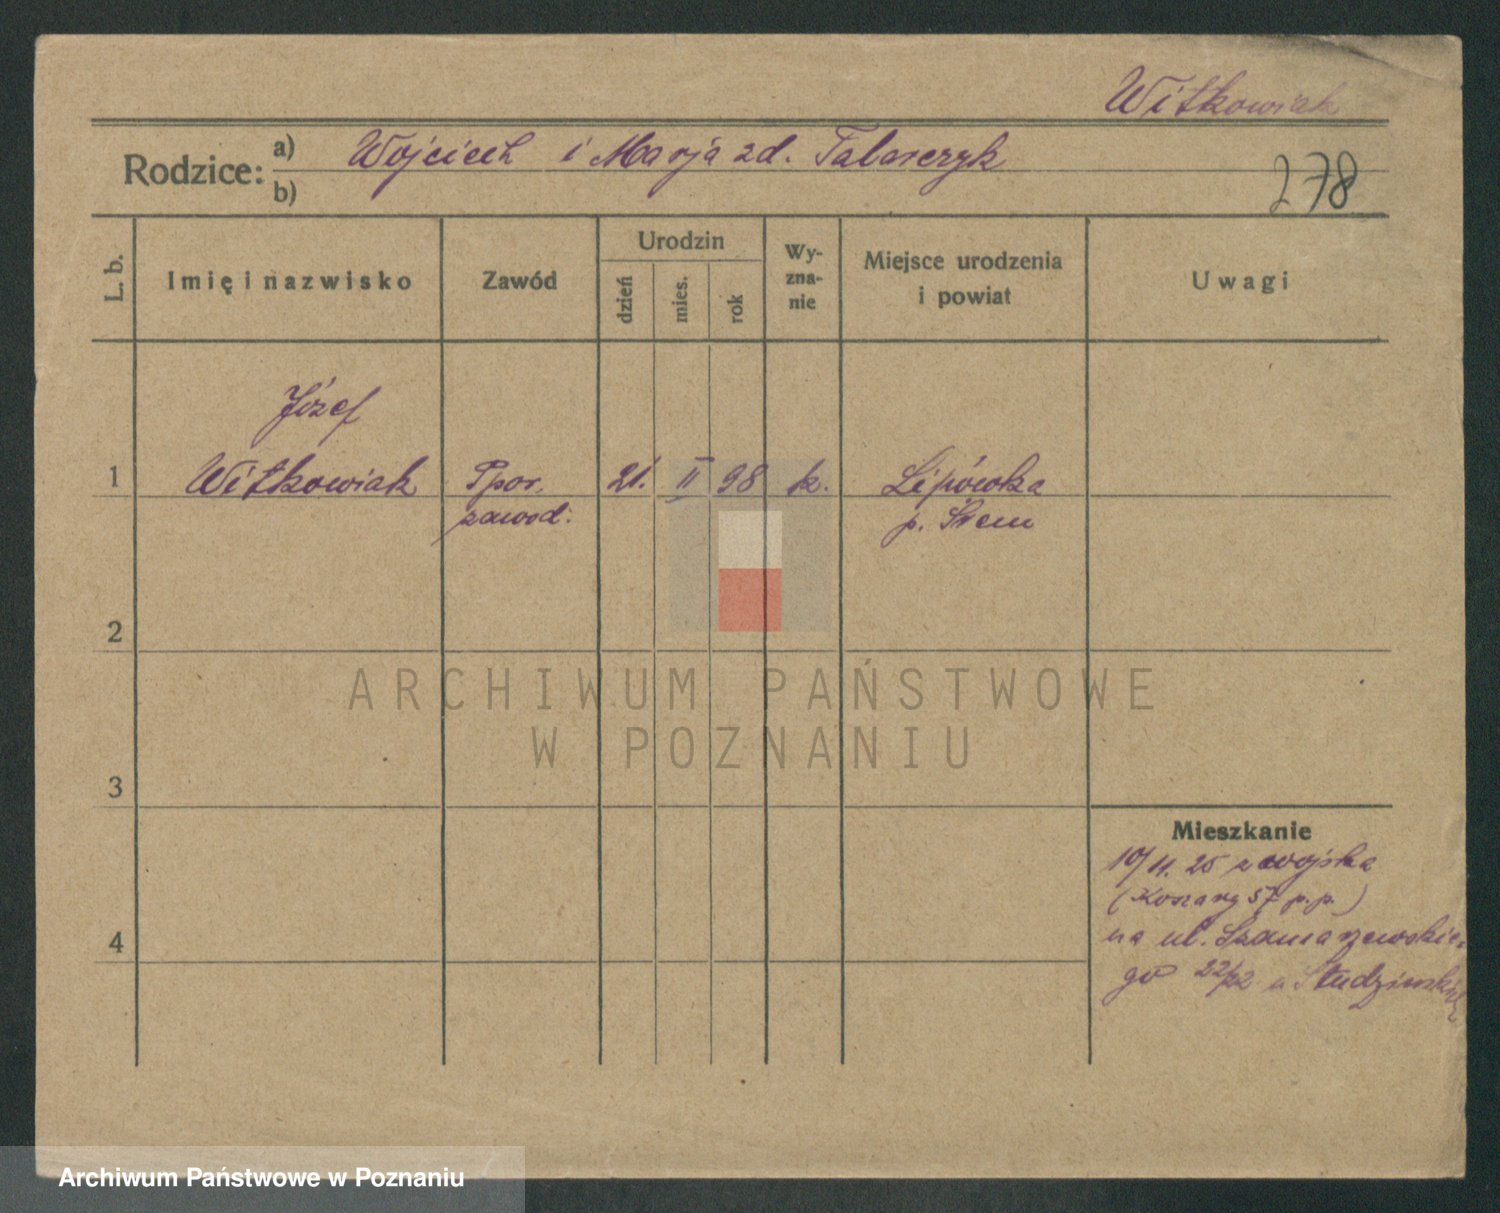 Witkowiak
Rodzice: a) Wojciech i Marja zd. Talarczyk
b)
278
L. b. Imię i nazwisko Zawód Urodzin dzień mies. rok Wyzna-nie Miejsce urodzenia i powiat Uwagi
Józef
1 Witkowiak Ppor. 21. II 98 k. Lipówka
zawod. p. Śrem
2
ARCHIWUM PAŃSTWOWE
W POZNANIU
3
Mieszkanie
10/11. 25 z wojska
(Koszary 57 p.p.)
4 na ul. Szamarzewskie-
go 22/22 u Studzińskiej
Archiwum Państwowe w Poznaniu